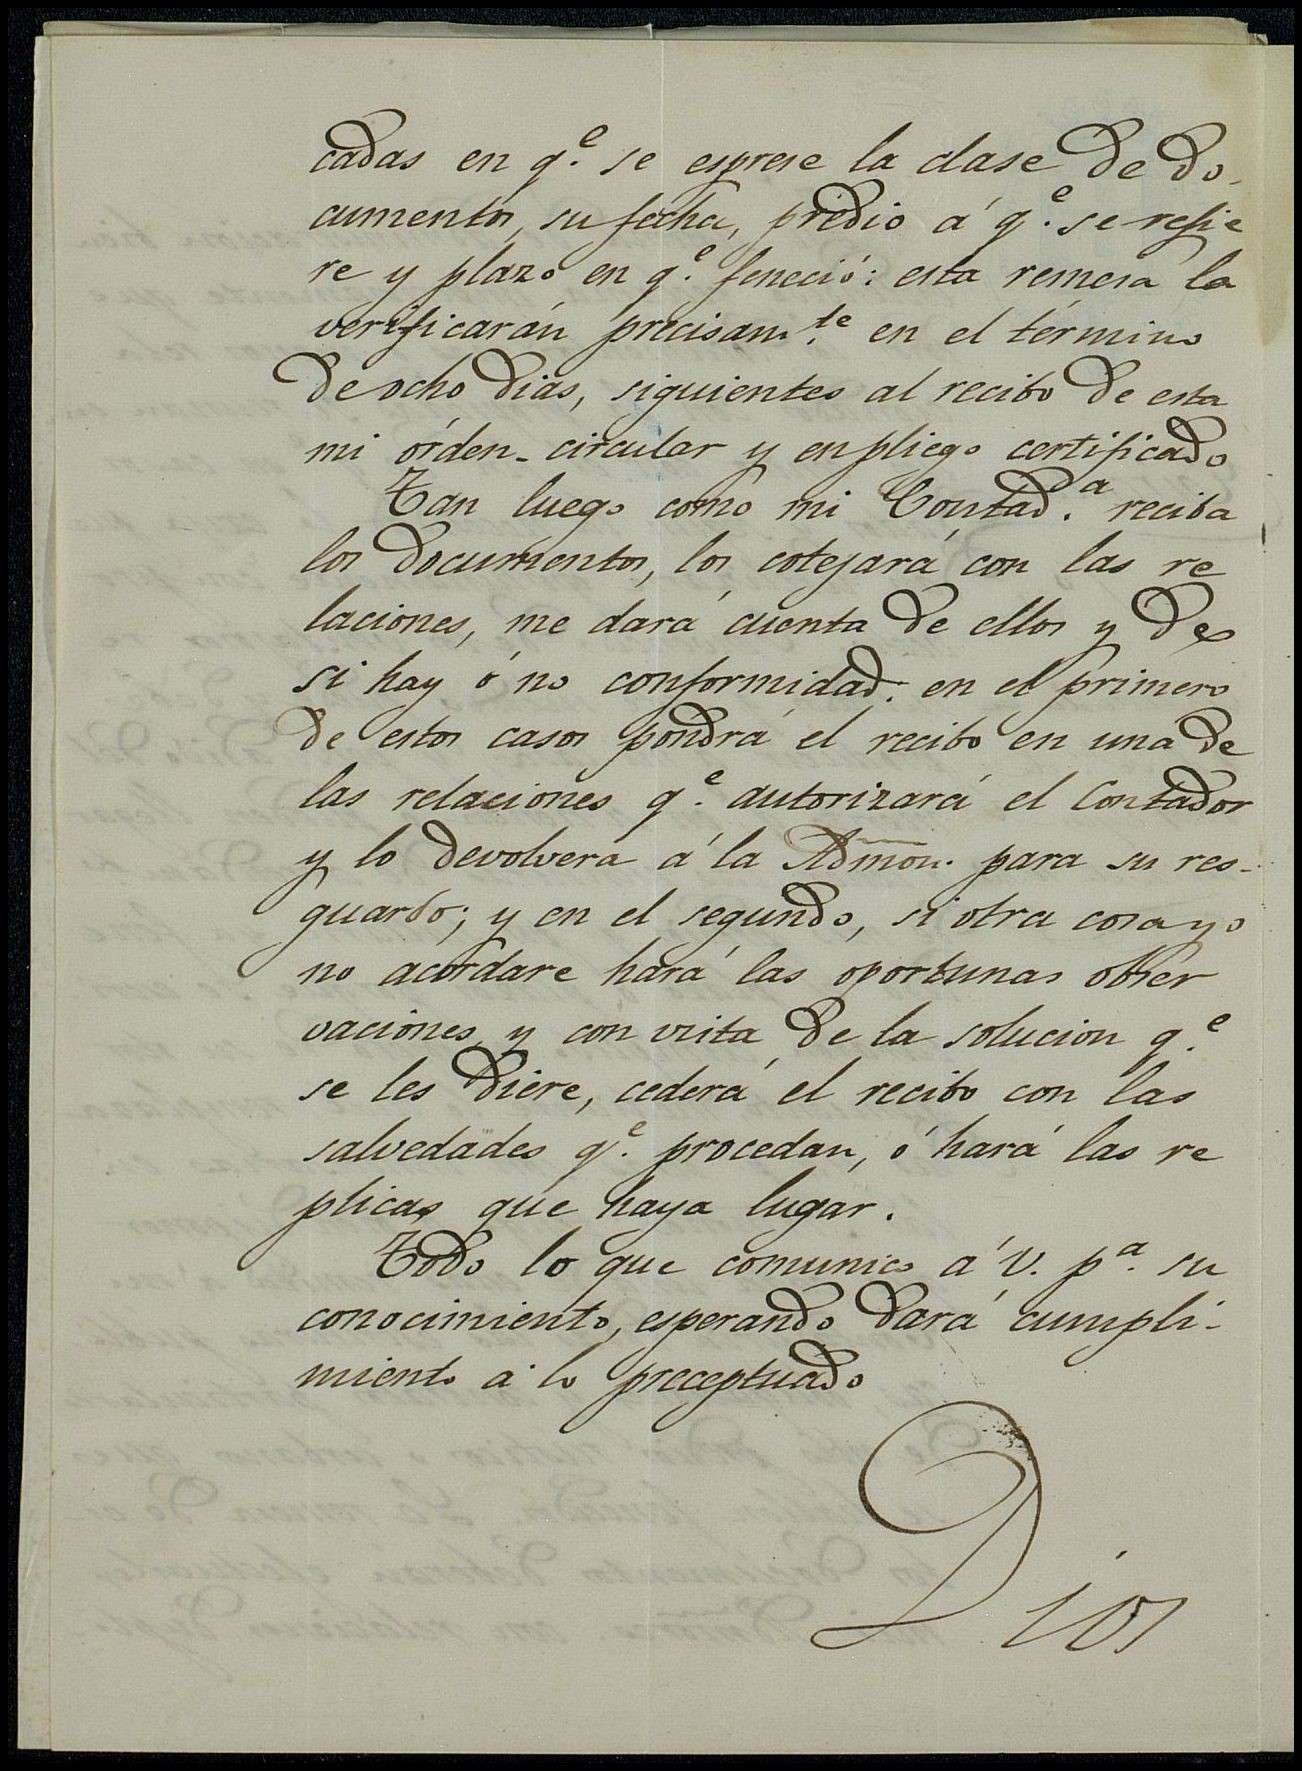 cadas en q.e se esprese la clase de do-
cumentos, su fecha, prédio á q.e se refie
re y plazo en q.e feneció: esta remesa la
verificarán precisam.te en el término
de ocho dias, siguientes al recibo de esta
mi órden-circular y en pliego certificado
Tan luego como mi Contad.a reciba
los documentos, los cotejará con las re
laciones, me dará cuenta de ellos y de
si hay ó no conformidad: en el primero
de estos casos pondrá el recibo en una de
las relaciones q.e autorizará el Contador
y lo devolvera á la Admon. para su res-
guardo; y en el segundo, si otra cosa yo
no acordare hará las oportunas obser
vaciones, y con vista de la solucion q.e
se les diere, cederá el recibo con las
salvedades q.e procedan, ó hará las re
plicas que haya lugar.
Todo lo que comunico á V. p.a su
conocimiento, esperando dará cumpli-
miento á lo preceptuado
Dios